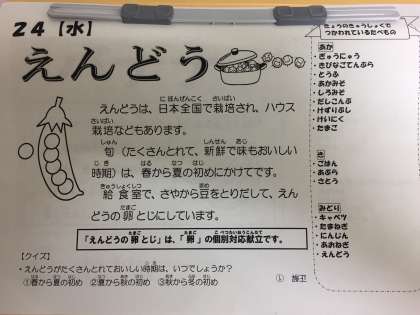 24【水】
えんどう
えんどうは、日本全国で栽培され、ハウス
栽培などもあります。
旬(たくさんとれて、新鮮で味もおいしい
時期)は、春から夏の初めにかけてです。
給食室で、さやから豆をとりだして、えん
どうの卵とじにしています。
「えんどうの卵とじ」は、「卵」の個別対応献立です。
【クイズ】
・えんどうがたくさんとれておいしい時期は、いつでしょうか?
①春から夏の初め ②夏から秋の初め ③秋から冬の初め
きょうのきゅうしょくで
つかわれているたべもの
あか
・ぎゅうにゅう
・きびなごてんぷら
・とうふ
・あかみそ
・しろみそ
・だしこんぶ
・けずりぶし
・けいにく
・たまご
き
・ごはん
・あぶら
・さとう
みどり
・キャベツ
・たまねぎ
・にんじん
・あおねぎ
・えんどう